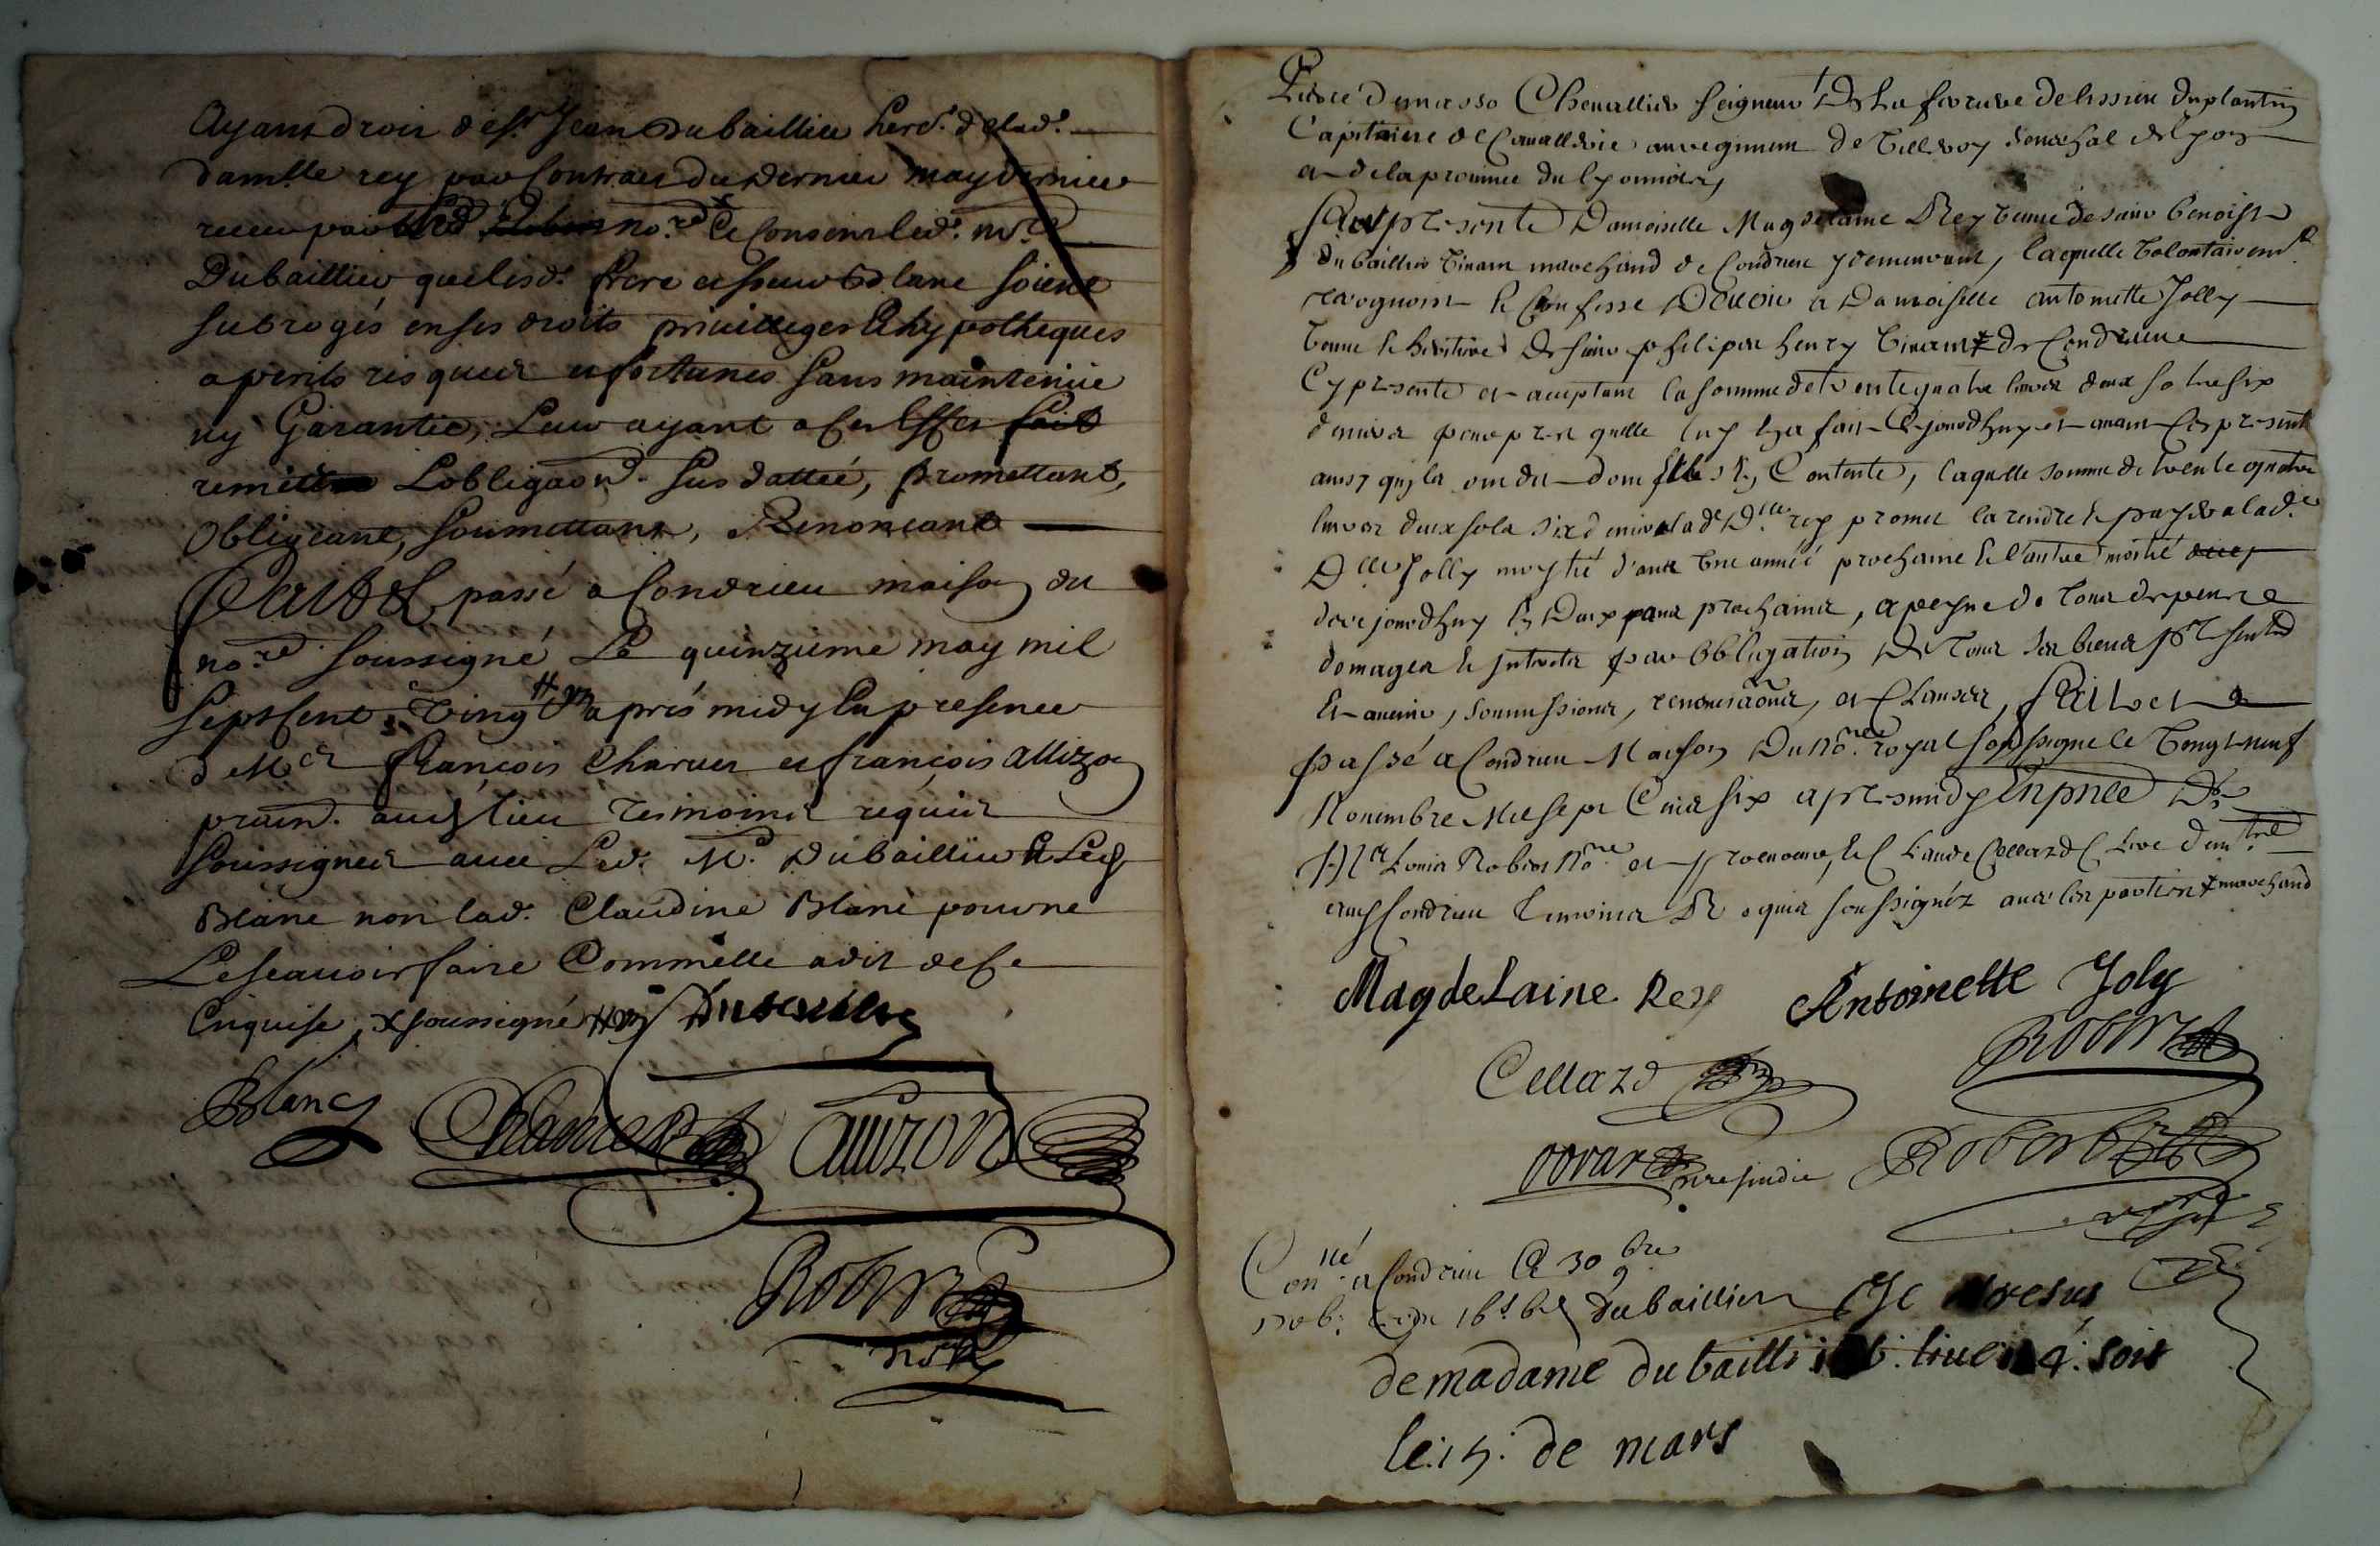 Ayant droit de s.r Jean Dubaillieu her.r de lad.e
dam.lle rey par Contract du dernier may dernier
receu par no.re Ce Consent led. m.re
Dubaillieu que lesd. frere et soeur Blanc soient
subrogés en ses droits privilleges Et hypotheques
a perils risques et fortunes sans maintenüe
ny Garantie, Leur ayant a Cet Effet fait
remettre Lobligaon. sus dattée, promettant,
Obligeant, soumettant, Renoncant
Fait & passé a Condrieu maison du
no.re soussigné Le quinzieme may mil
sept Cent Vingt apres midy En presence
de M.es françois Charvet et françois allizon
praticn. aud. lieu tesmoins requis
soussignes avec Led. M.e Dubaillieu & Led.
Blanc non lad. Claudine Blanc pour ne
Le scavoir faire Comme elle a dit de Ce
Enquise, x soussigné Dubaillieu
Blanc Charvet allizon
Robin
no.re
Pierre Demasso Chevallier seigneur De La ferriere de lissieu Duplantin
Capitaine de Cavallerie au regiment de Villeroy senechal de lyon
et de la province du lyonnois,
Fut presente Damoiselle Magdelaine Rey veuve de sieur benoist
dubaillieu vivant marchand de Condrieu y demeurant, laquelle volontairem.t
recognoist & Confesse Devoir a Damoiselle antoinette Jolly
veuve & heritiere De sieur philipes henry vivant # de Condrieu
Cy presente et acceptant la somme de trente quatre livres deux sols six
deniers pour prest quelle luy En a fait Cejourdhuy et avant Ces presentes
ainsy quelles ont dit dont Elle s'est Contente, laquelle somme de trente quatre
livres deux sols six deniers lad.e D.lle rey promet la rendre & payer a lad.e
D.lle Jolly moytié dans une année prochaine & l'autre moitié
dece jourdhuy En Deux ans prochains, a peyne de tous depens
domages & interets par Obligation De tous ses biens presents
Et avenir, soumissions, renonciaõns, et Clauses, Fait et
passé a Condrieu Maison Du no.re royal soussigné le vingt neuf
Novembre Mil sept Cens six apres midy En pnce De
M.e Louis Robin no.re et procureur, & Claude Cellard Clerc
aud. Condrieu temoins Requis soussignéz avec les parties # marchand
Magdelaine Rey Antoinette Joly
Cellard Robin
Robin
Con.llé a Condrieu Ce 30 9.bre
1706. dubaillieu Je
de madame dubailli livers 4. sois
le. 15. de mars